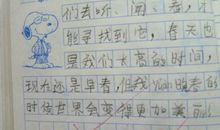 们去听、闻、看，才
能寻找到它，春天也
是我们太高的时间，
现在还是早春，但我 晚春的
时候世界会变得更加美丽。